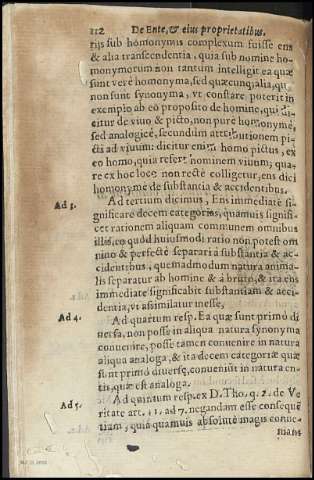 112 De Ente, & eius proprietatibus.
rijs sub homonymis complexum fuisse ens
& alia transcendentia. quia sub nomine ho-
monymorum non tantum intelligit ea quæ
sunt verè homonyma, sed quæcunq; alia, quæ
non sunt synonyma, vt constare poterit in
exemplo ab eo proposito de homine, qui di-
citur de viuo & picto, non purè homonymè,
sed analogicè, secundum attributionem pi-
cti ad viuum: dicitur enim homo pictus, ex
eo homo, quia refert hominem viuum; qua-
re ex hoc loco non rectè colligetur, ens dici
homonymè de substantia & accidentibus.
Ad 3. Ad tertium dicimus, Ens immediatè si-
gnificare decem categorias, quamuis signifi-
cet rationem aliquam communem omnibus
illis, eo quòd huiusmodi ratio non potest om
nino & perfectè separari à substantia & ac-
cidentibus, quemadmodum natura anima-
lis separatur ab homine & à bruto, & ita ens
immediatè significabit substantiam & acci-
dentia, vt assimilatur inesse,
Ad 4. Ad quartum resp. Ea quæ sunt primò di
uersa, non posse in aliqua natura synonyma
conuenire, posse tamen conuenire in natura
aliqua analoga, & ita decem categoriæ quæ
sunt primò diuersæ, conueniunt in natura en-
tis, quæ est analoga.
Ad 5. Ad quintum resp. ex D. Tho. q. 2. de Ve
ritate art. 11. ad 7. negandam esse consequen
tiam, quia quamuis absolutè magis conue-
niant